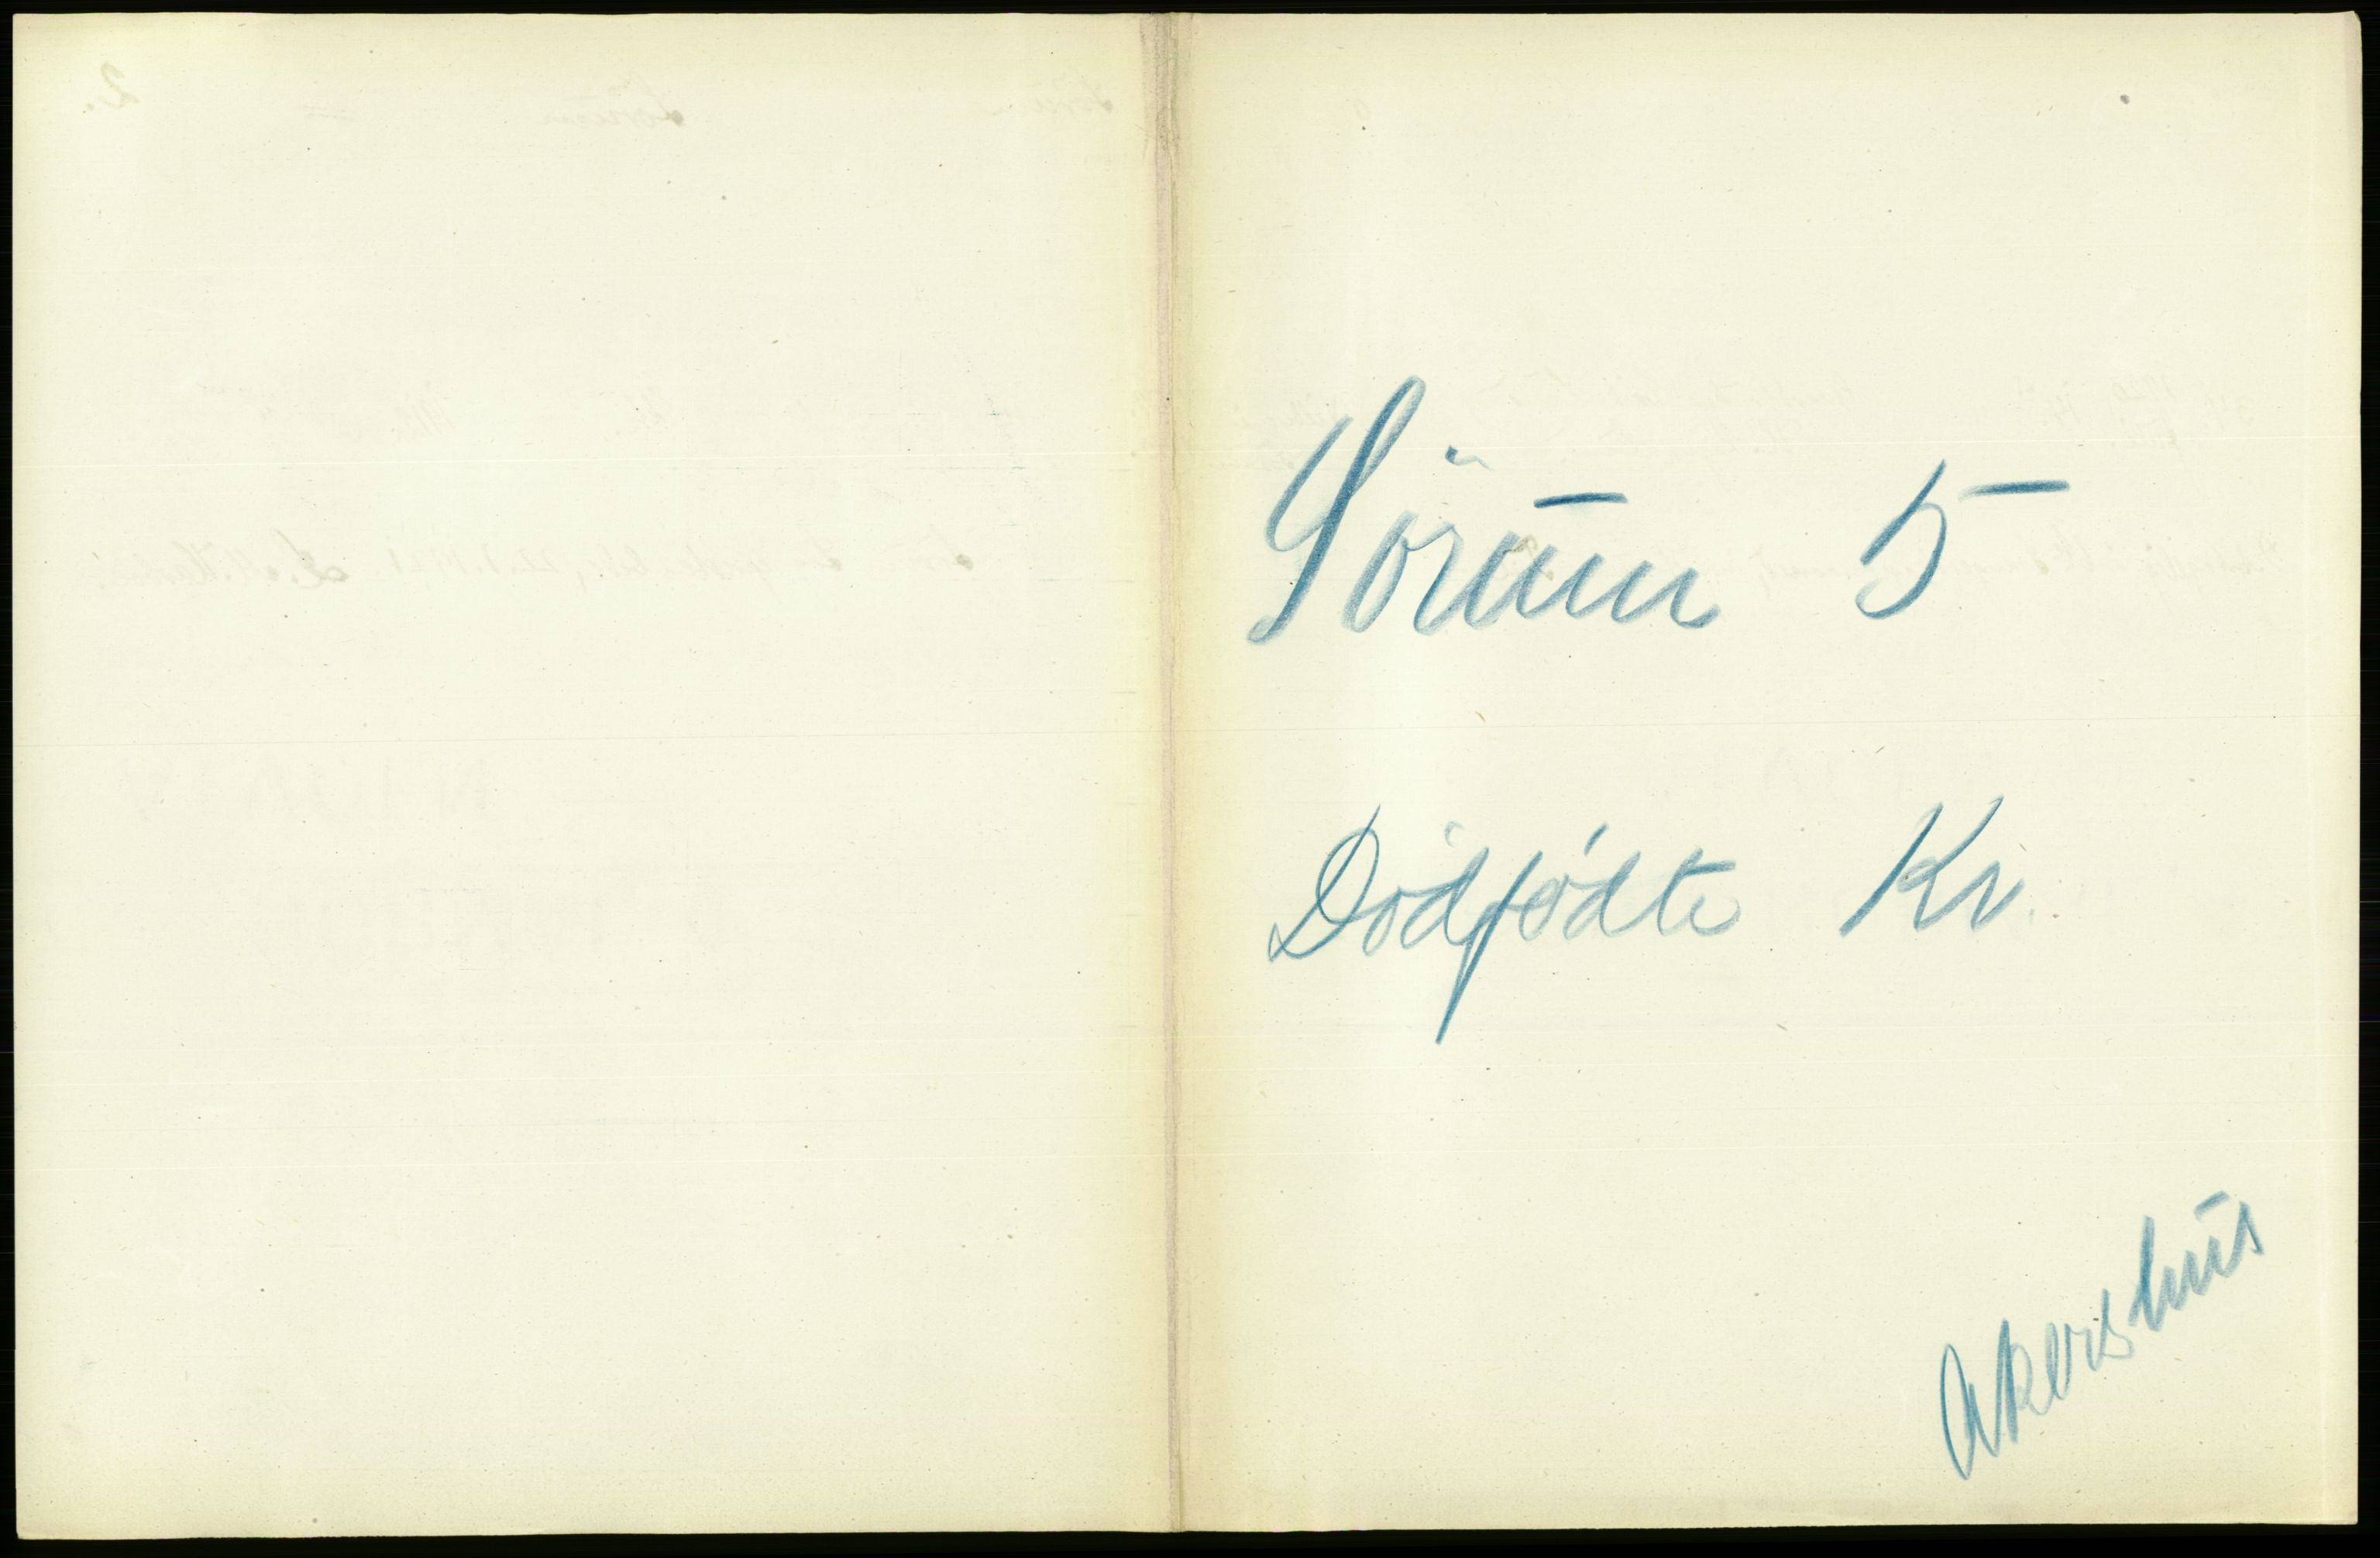 Sörum 5
Dødfødte Kv.
Akershus